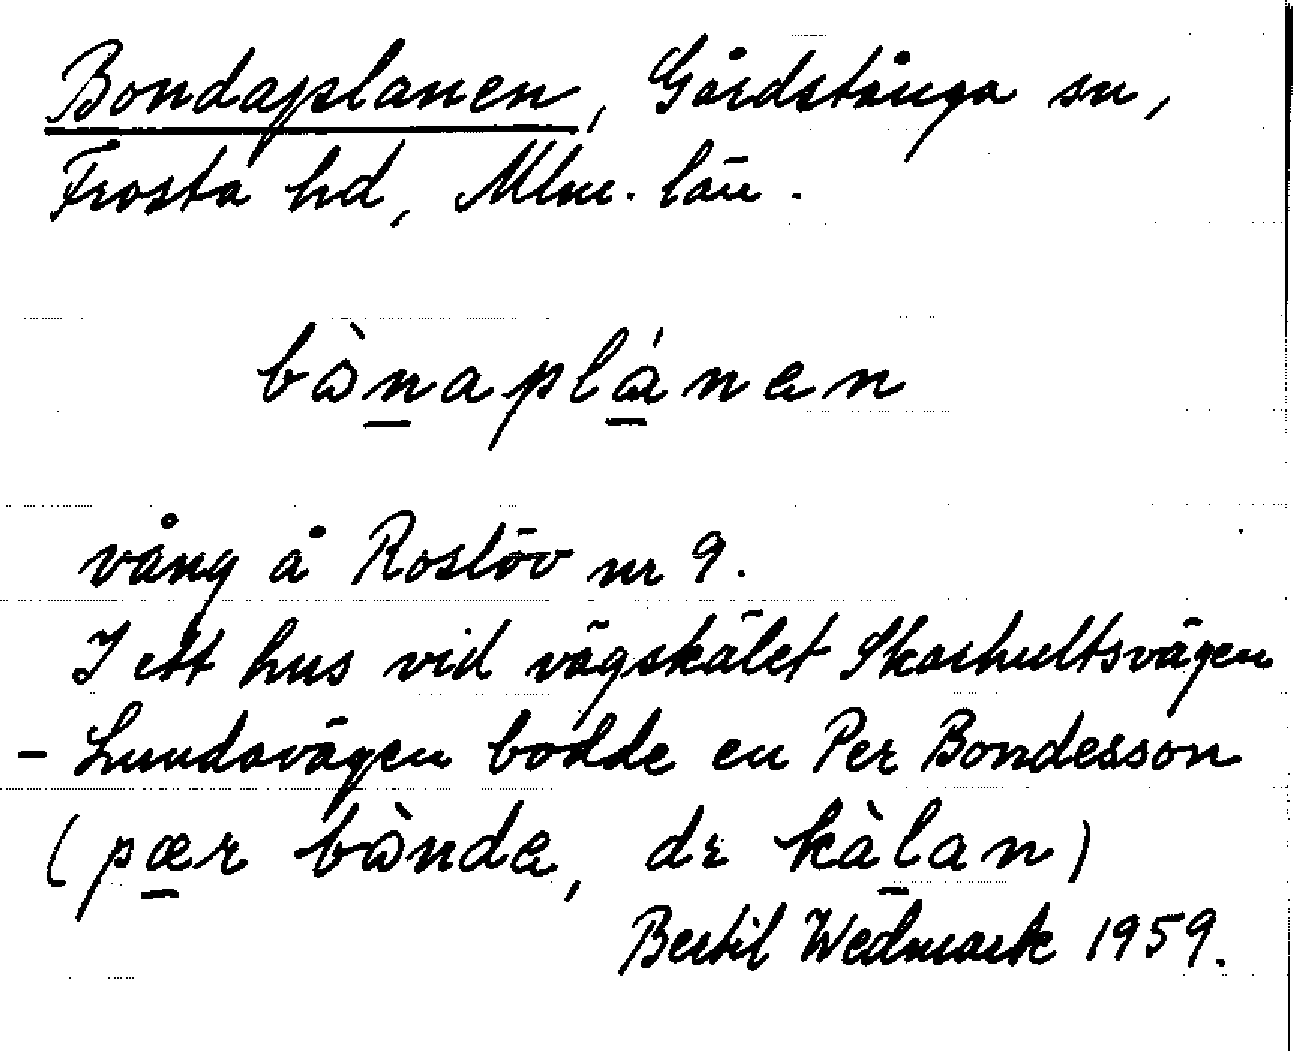 Bondaplanen, Gårdstånga sn,
Frosta hd, Mlm. län.
bànaplánen
vång å Roslöv nr 9.
I ett hus vid vägskälet Skarhultsvägen
- Lundavägen bodde en Per Bondesson
(pær bànde, de kàlan)
Bertil Wedmark 1959.